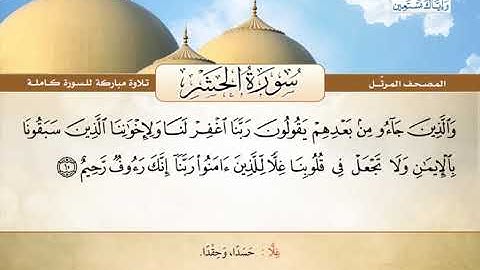 وَإِيَّاكَ نَسْتَعِينُ
المصحف المرتل
سُورَةُ الحَشْرِ
تلاوة مباركة للسورة كاملة
وَٱلَّذِينَ جَآءُو مِنۢ بَعْدِهِمْ يَقُولُونَ رَبَّنَا ٱغْفِرْ لَنَا وَلِإِخْوَٰنِنَا ٱلَّذِينَ سَبَقُونَا
بِٱلْإِيمَٰنِ وَلَا تَجْعَلْ فِى قُلُوبِنَا غِلًّا لِّلَّذِينَ ءَامَنُوا۟ رَبَّنَآ إِنَّكَ رَءُوفٌ رَّحِيمٌ ١٠
غِلًّا : حَسَدًا، وَحِقْدًا.